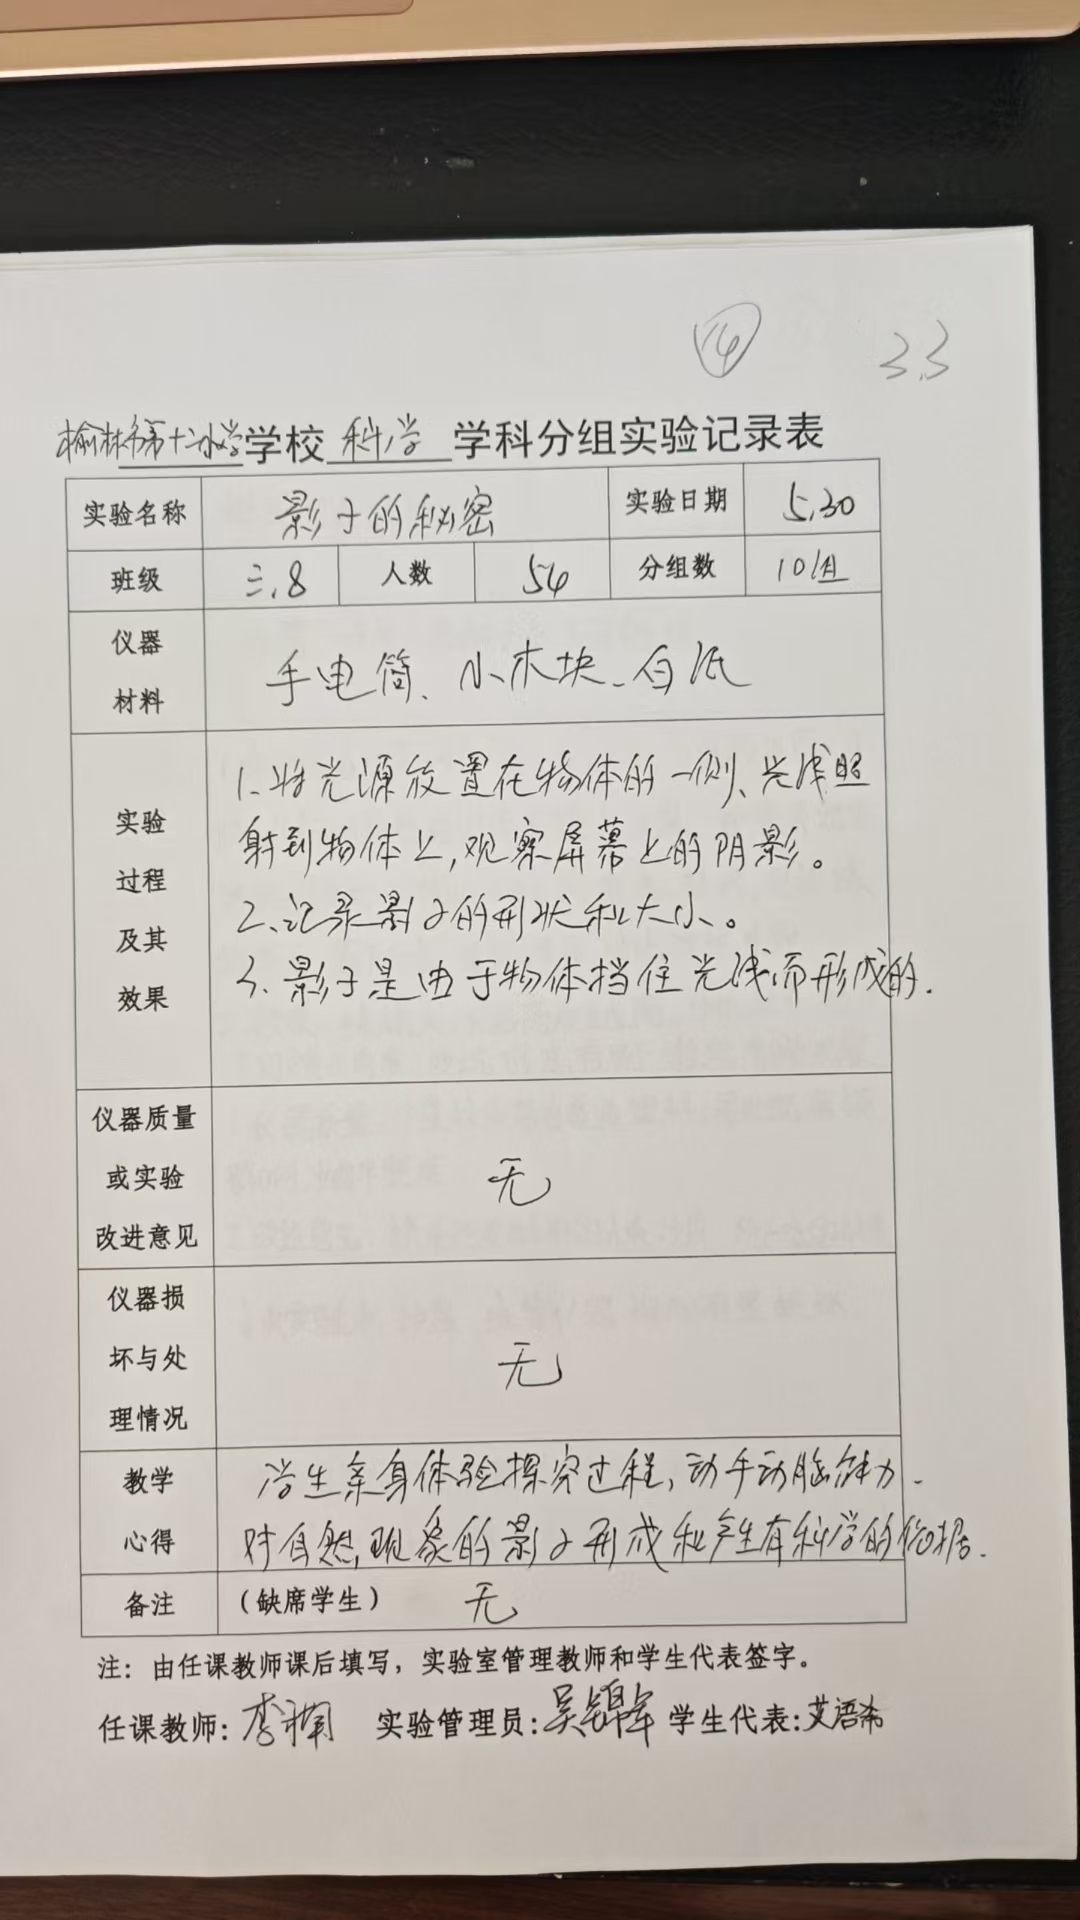 ⑭ 3.3
榆林市第十二小学学校 科学 学科分组实验记录表
实验名称 影子的秘密 实验日期 5.30
班级 三.8 人数 54 分组数 10组
仪器
材料
手电筒、小木块、白纸
实验
过程
及其
效果
1.将光源放置在物体的一侧、光线照
射到物体上,观察屏幕上的阴影。
2.记录影子的形状和大小。
3.影子是由于物体挡住光线而形成的.
仪器质量
或实验
改进意见
无
仪器损
坏与处
理情况
无
教学
心得
学生亲身体验探究过程,动手动脑能力.
对自然现象的影子形成和产生有科学的依据.
备注 (缺席学生) 无
注:由任课教师课后填写,实验室管理教师和学生代表签字。
任课教师:李 实验管理员:吴锦 学生代表:艾语希